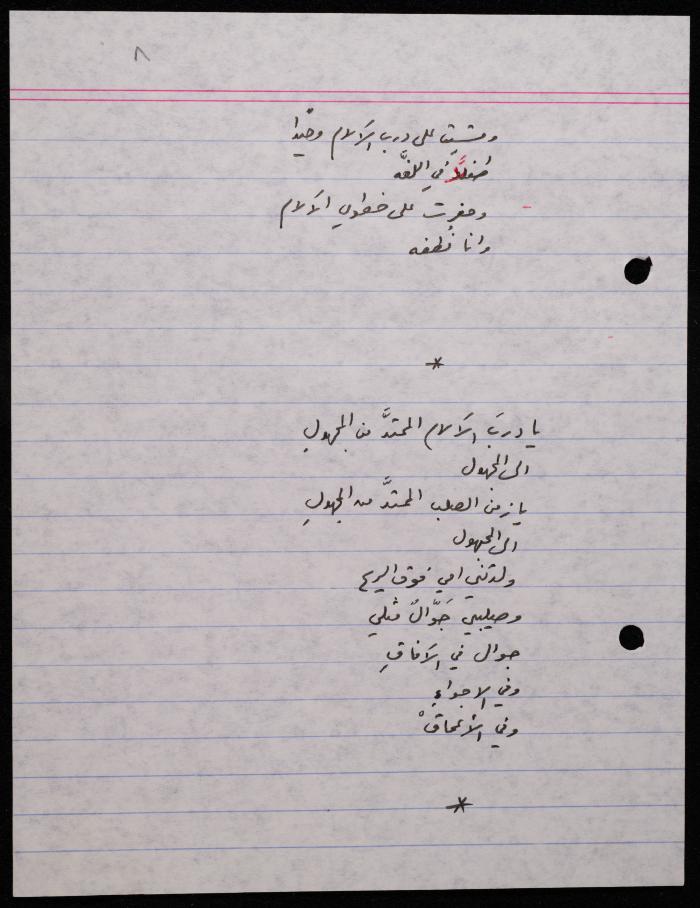 ٨
ومشيت على درب الآلام وحيدا
طفلاً في اللفَّه
وحفرت على خطوي الآلام
وانا نُطفه
*
يا دربَ الآلام الممتدَّ من المجهولِ
الى المجهول
يا زمن الصلب الممتدَّ من المجهولِ
الى المجهول
ولدتني امي فوق الريح
وصليبي جَوَّالٌ مثلي
جوال في الآفاقِ
وفي الاجواءِ
وفي الأعماقْ
*